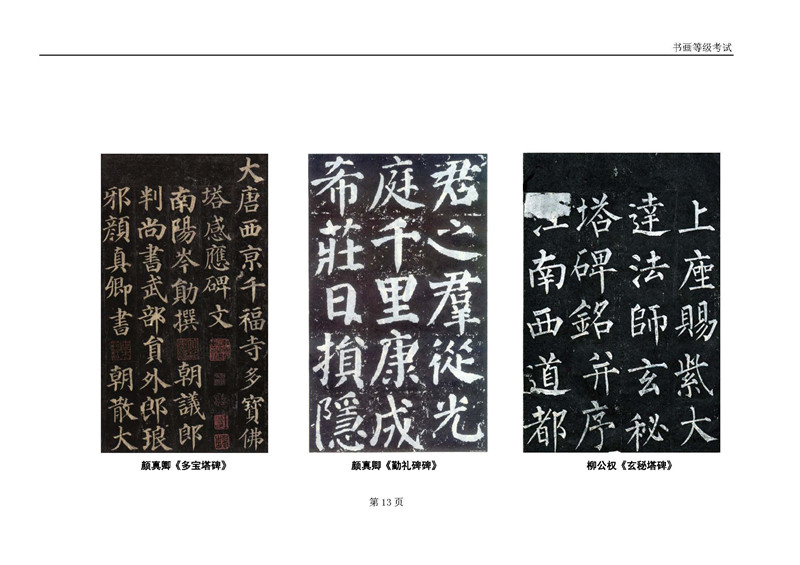 书画等级考试
大唐西京千福寺多寶佛
塔感應碑文
南陽岑勛撰 朝議郎
判尚書武部員外郎琅
邪顏真卿書 朝散大
君之羣從光
庭千里康成
希莊日損隱
上座賜紫大
達法師玄秘
塔碑銘并序
江南西道都
颜真卿《多宝塔碑》
颜真卿《勤礼碑碑》
柳公权《玄秘塔碑》
第 13 页